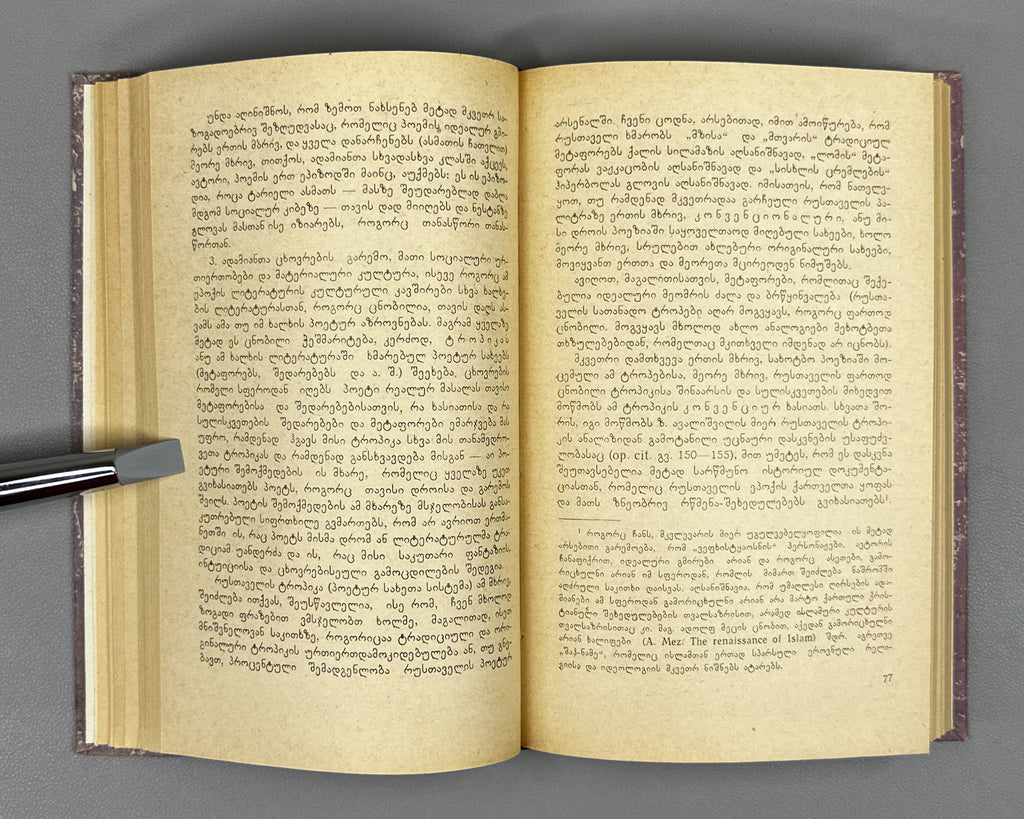 უნდა აღინიშნოს, რომ ზემოთ ნახსენებ მეტად მკვეთრ სა-
ზოგადოებრივ შეზღუდვასაც, რომელიც პოემის იდეალურ გმი-
რებს ერთის მხრივ, და ყველა დანარჩენებს (ასმათის ჩათვლით)
მეორე მხრივ, თითქოს, ადამიანთა სხვადასხვა კლასში აქცევს,
ავტორი, პოემის ერთ ეპიზოდში მაინც, აუქმებს; ეს ის ეპიზო-
დია, როცა ტარიელი ასმათს — მასზე შეუდარებლად დაბლა
მდგომ სოციალურ კიბეზე — თავის დად მიიღებს და ნესტანზე
გლოვას მასთან ისე იზიარებს, როგორც თანასწორი თანას-
წორთან.
3. ადამიანთა ცხოვრების გარემო, მათი სოციალური ურ-
თიერთობები და მატერიალური კულტურა, ისევე როგორც ამ
ეპოქის ლიტერატურის კულტურული კავშირები სხვა ხალხე-
ბის ლიტერატურასთან, როგორც ცნობილია, თავის დაღს ას-
ვამს ამა თუ იმ ხალხის პოეტურ აზროვნებას. მაგრამ ყველაზე
მეტად ეს ცნობილი ჭეშმარიტება, კერძოდ, ტროპიკას
ანუ ამ ხალხის ლიტერატურაში ხმარებულ პოეტურ სახეებს
(მეტაფორებს, შედარებებს და ა. შ.) შეეხება. ცხოვრების
რომელი სფეროდან იღებს პოეტი რეალურ მასალას თავისი
მეტაფორებისა და შედარებებისათვის, რა ხასიათისა და რა
სულისკვეთების შედარებები და მეტაფორები ემარჯვება მას
უფრო, რამდენად ჰგავს მისი ტროპიკა სხვა მის თანამედრო-
ვეთა ტროპიკას და რამდენად განსხვავდება მისგან — აი პო-
ეტური შემოქმედების ის მხარე, რომელიც ყველაზე უკეთ
გვიხასიათებს პოეტს, როგორც თავისი დროისა და გარემოს
შვილს. პოეტის შემოქმედების ამ მხარეზე მსჯელობისას განსა-
კუთრებული სიფრთხილე გვმართებს, რომ არ ავრიოთ ერთმა-
ნეთში ის, რაც პოეტს მისმა დრომ ან ლიტერატურულმა ტრა-
დიციამ უანდერძა და ის, რაც მისი საკუთარი ფანტაზიის,
ინტუიციისა და ცხოვრებისეული გამოცდილების შედეგია.
რუსთაველის ტროპიკა (პოეტურ სახეთა სისტემა) ამ მხრივ,
შეიძლება ითქვას, შეუსწავლელია, ისე რომ, ჩვენ მხოლოდ
ზოგადი ფრაზებით ვმსჯელობთ ხოლმე, მაგალითად, ისეთ
მნიშვნელოვან საკითხზე, როგორიცაა ტრადიციული და ორი-
გინალური ტროპიკის ურთიერთდამოკიდებულება ან, თუ გნე-
ბავთ, პროცენტული შემადგენლობა რუსთაველის პოეტურ
არსენალში. ჩვენი ცოდნა, არსებითად, იმით ამოიწურება, რომ
რუსთაველი ხმარობს „მზისა“ და „მთვარის“ ტრადიციულ
მეტაფორებს ქალის სილამაზის აღსანიშნავად, „ლომის“ მეტა-
ფორას ვაჟკაცობის აღსანიშნავად და „სისხლის ცრემლების“
ჰიპერბოლას გლოვის აღსანიშნავად. იმისათვის, რომ ნათელვ-
ყოთ, თუ რამდენად მკვეთრადაა გარჩეული რუსთაველის პა-
ლიტრაზე ერთის მხრივ, კონვენციონალური, ანუ მი-
სი დროის პოეზიაში საყოველთაოდ მიღებული სახეები, ხოლო
მეორე მხრივ, სრულებით ახლებური ორიგინალური სახეები,
მოვიყვანთ ერთთა და მეორეთა მცირეოდენ ნიმუშებს.
ავიღოთ, მაგალითისათვის, მეტაფორები, რომლითაც შექე-
ბულია იდეალური მეომრის ძალა და ბრწყინვალება (რუსთა-
ველის სათანადო ტროპები აღარ მოგვყავს, როგორც ფართოდ
ცნობილი. მოგვყავს მხოლოდ ახლო ანალოგიები მეხოტბეთა
თხზულებებიდან, რომელთაც მკითხველი იმდენად არ იცნობს).
მკვეთრი დამთხვევა ერთის მხრივ, სახოტბო პოეზიაში მო-
ცემული ამ ტროპებისა, მეორე მხრივ, რუსთაველის ფართოდ
ცნობილი ტროპიკისა შინაარსის და სულისკვეთების მიხედვით
მოწმობს ამ ტროპიკის კონვენციურ ხასიათს. სხვათა შო-
რის, იგი მოწმობს ზ. ავალიშვილის მიერ რუსთაველის ტროპი-
კის ანალიზიდან გამოტანილი უცნაური დასკვნების უსაფუძვ-
ლობასაც (op. cit. გვ. 150—155). მით უმეტეს, რომ ეს დასკვნა
შეუთავსებელია მეტად სარწმუნო ისტორიულ დოკუმენტა-
ციასთან, რომელიც რუსთაველის ეპოქის ქართველთა ყოფას
და მათს ზნეობრივ რწმენა-შეხედულებებს გვიხასიათებს¹.
¹ როგორც ჩანს, მკვლევარის მიერ უგულვებელყოფილია ის მეტად
არსებითი გარემოება, რომ „ვეფხისტყაოსნის“ პერსონაჟები, ავტორის
ჩანაფიქრით, იდეალური გმირები არიან და როგორც ასეთები, გამო-
რიცხულნი არიან იმ სფეროდან, რომლის მიმართ შეიძლება ნაშრომში
აღძრული საკითხი დაისვას. აღსანიშნავია, რომ უმაღლესი ღირსების ადა-
მიანები ამ სფეროდან გამორიცხულნი არიან არა მარტო ქართული ქრის-
ტიანული შეხედულებების თვალსაზრისით, არამედ ისლამური კულტურის
თვალსაზრისითაც კი. მაგ. ადოლფ მეცის ცნობით, აქედან გამორიცხულნი
არიან ხალიფები (A. Mez. The renaissance of Islam) შდრ. აგრეთვე
„შაჰ-ნამე“, რომელიც ისლამთან ერთად სპარსული ეროვნული რელი-
გიისა და იდეოლოგიის მკვეთრ ნიშნებს ატარებს.
77